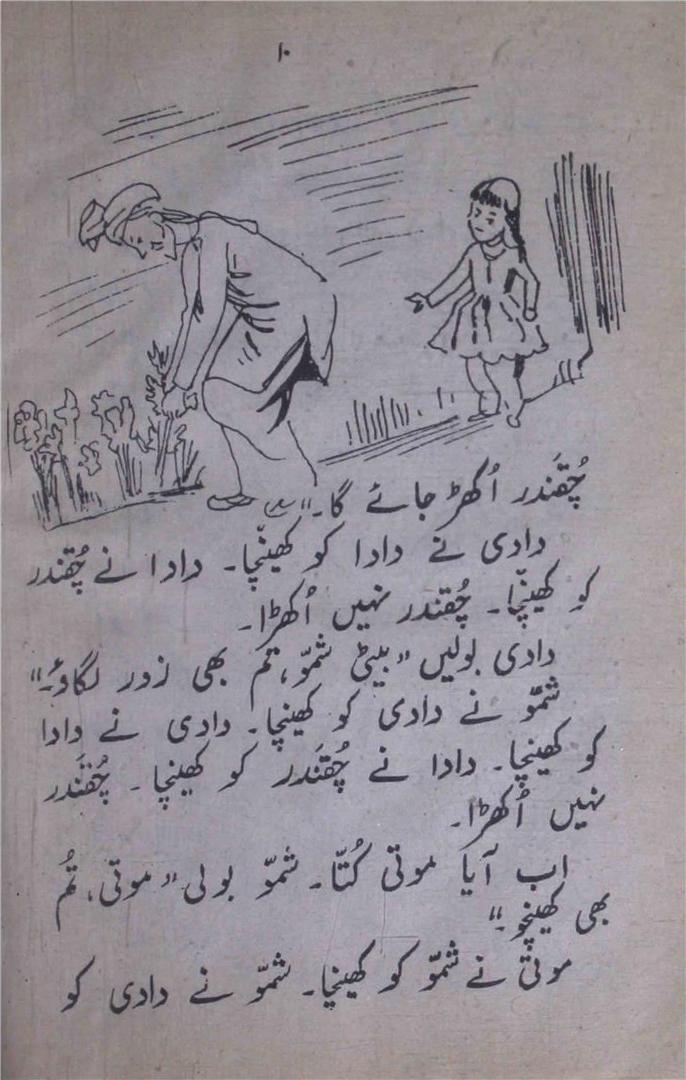 ۱۰
چُقَندر اُکھڑ جائے گا۔"
دادی نے دادا کو کھینّچا۔ دادا نے چُقندر
کو کھینّچا۔ چُقندر نہیں اُکھڑا۔
دادی بولیں "بیٹی شمّو، تم بھی زور لگاؤ۔"
شمّو نے دادی کو کھینچا۔ دادی نے دادا
کو کھینچا۔ دادا نے چُقَندر کو کھینچا۔ چُقَندر
نہیں اُکھڑا۔
اب آیا موتی کُتّا۔ شمّو بولی "موتی، تُم
بھی کھینچو۔"
موتی نے شمّو کو کھینچا۔ شمّو نے دادی کو